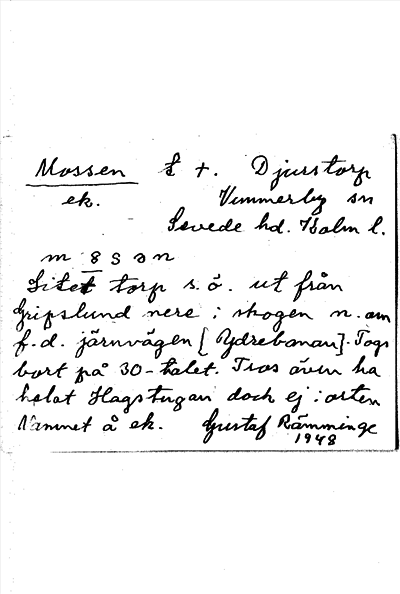 Mossen t. Djurstorp
ek. Vimmerby sn
Sevede hd. Kalm l.
m 8 s ə n
Litet torp s. ö. ut från
Gripslund nere i skogen n. om
f.d. järnvägen [Ydrebanan]. Togs
bort på 30-talet. Tros även ha
hetat Hagstugan dock ej i orten
Namnet å ek. Gustaf Rämminge
1948